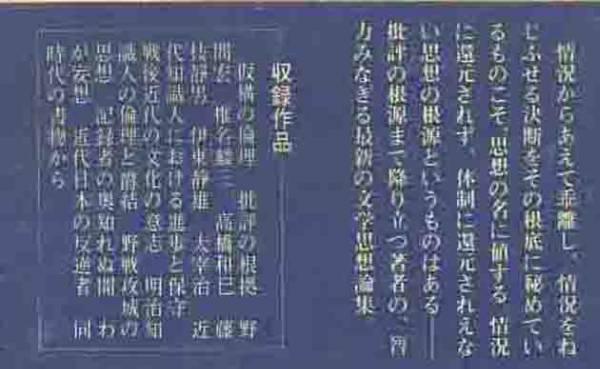 情況からあえて乖離し、情況をね
じふせる決断をその根底に秘めてい
るものこそ、思想の名に値する。情況
に還元されず、体制に還元されえな
い思想の根源というものはある——
批評の根源まで降り立つ著者の、膂
力みなぎる最新の文学思想論集
収録作品
仮構の倫理 批評の根拠 野
間宏 椎名麟三 高橋和巳 藤
枝静男 伊東静雄 太宰治 近
代知識人における進歩と保守
戦後近代の文化の意志 明治知
識人の倫理と 野戦攻城の
思想 記録者の奥知れぬ闇 わ
が妄想 近代日本の反逆者 同
時代の書物から